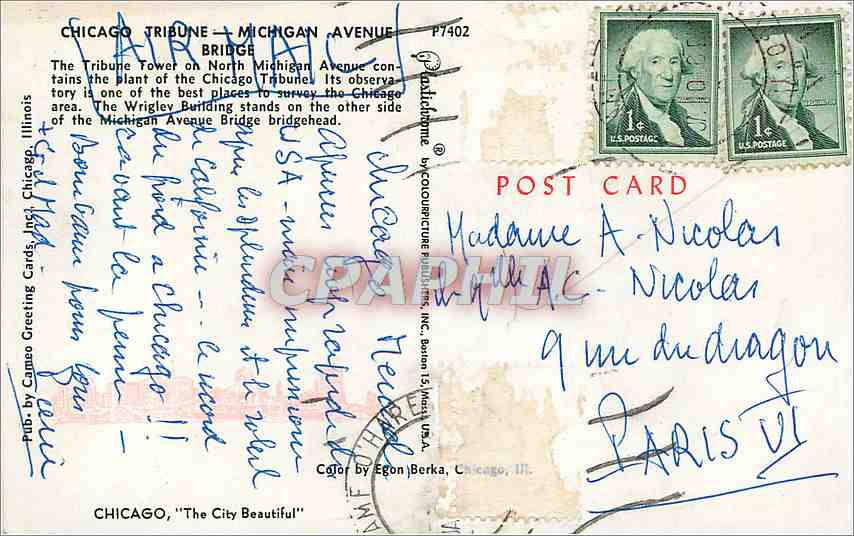 CHICAGO TRIBUNE — MICHIGAN AVENUE
BRIDGE
The Tribune Tower on North Michigan Avenue con-
tains the plant of the Chicago Tribune. Its observa-
tory is one of the best places to survey the Chicago
area. The Wrigley Building stands on the other side
of the Michigan Avenue Bridge bridgehead.
AIR MAIL
P7402
Plastichrome ® by COLOURPICTURE PUBLISHERS, INC., Boston 15, Mass., U.S.A.
Pub. by Cameo Greeting Cards, Inc., Chicago, Illinois
Chicago Mercredi
USA - mais
après les splendeurs et le soleil
de Californie -- le nord
du froid a Chicago !!
ça vaut la peine -
pour tous
1¢
U.S. POSTAGE
WASHINGTON
1¢
U.S. POSTAGE
WASHINGTON
POST CARD
Madame A. Nicolas
Mlle A.C. Nicolas
9 rue du dragon
PARIS VI
CPAPHIL
O'HARE
Color by Egon Berka, Chicago, Ill.
CHICAGO, "The City Beautiful"